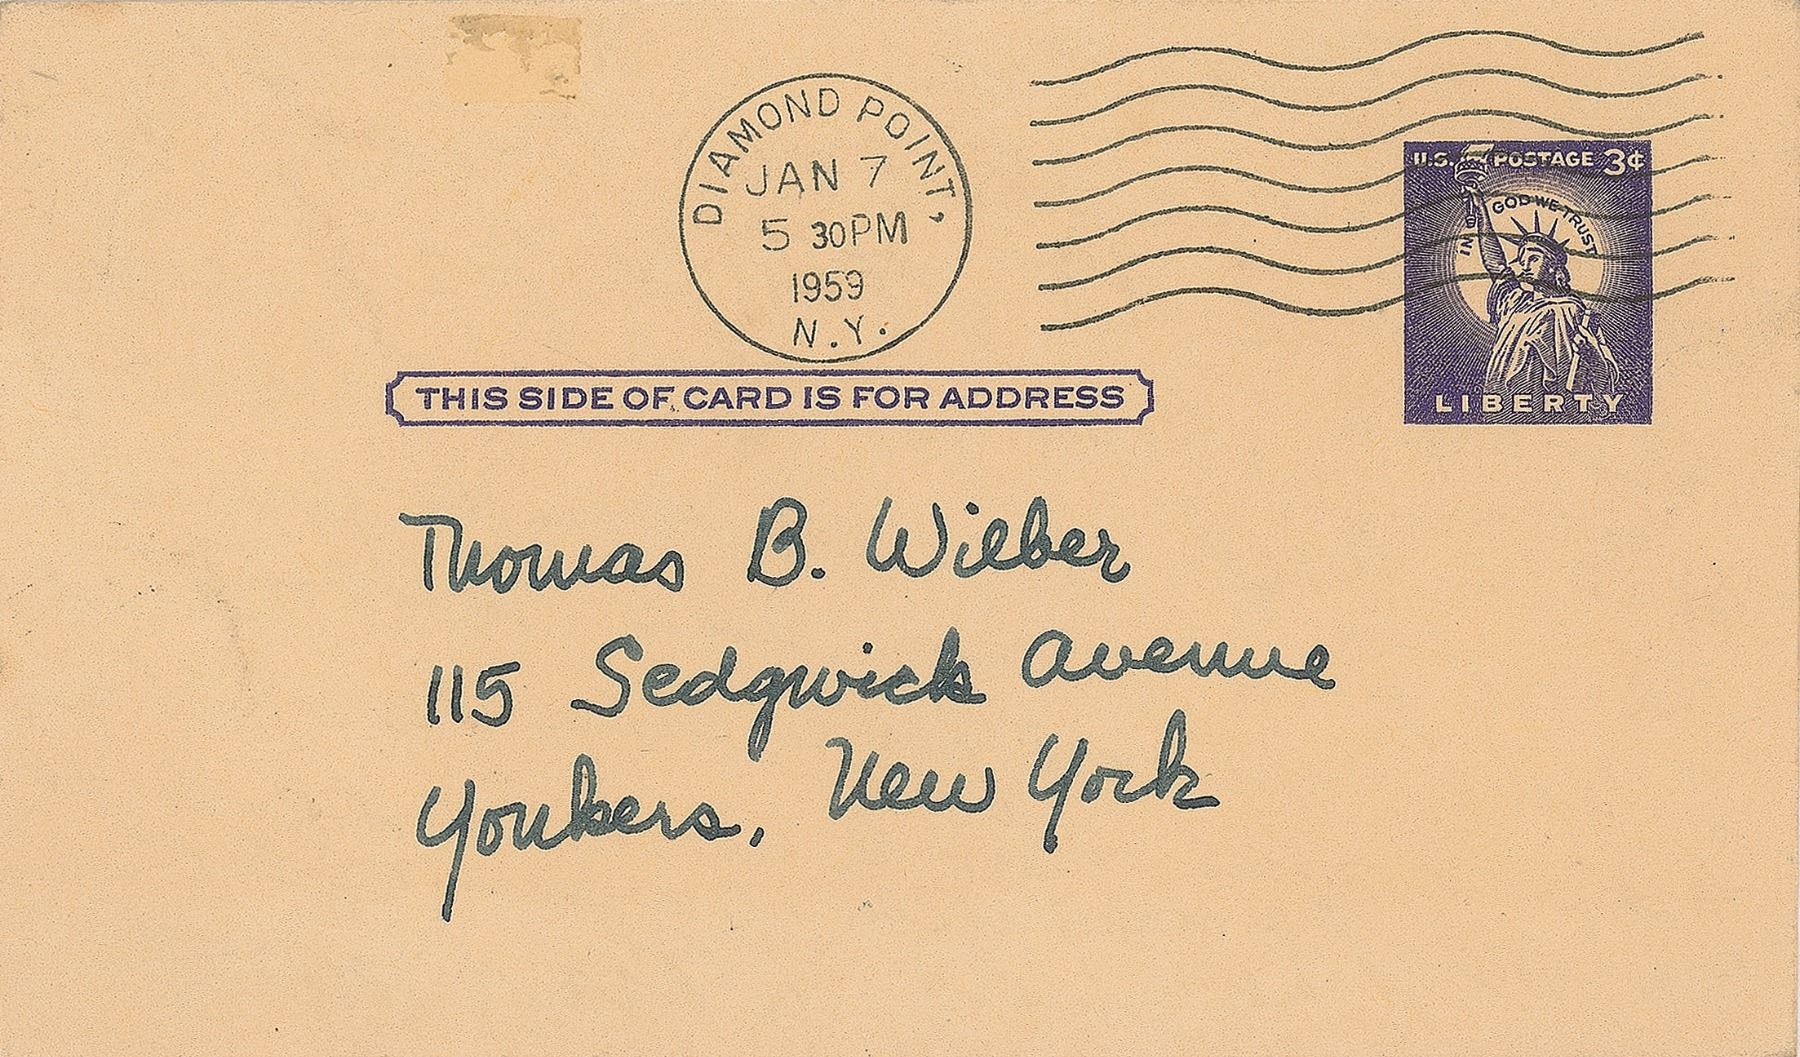 DIAMOND POINT,
JAN 7
5 30PM
1959
N.Y.
U.S. POSTAGE 3¢
IN GOD WE TRUST
LIBERTY
THIS SIDE OF CARD IS FOR ADDRESS
Thomas B. Wilber
115 Sedgwick Avenue
Yonkers, New York